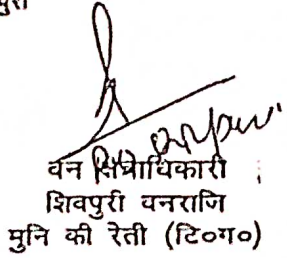 पुरी
वन क्षेत्राधिकारी
शिवपुरी वनराजि
मुनि की रेती (टि०ग०)